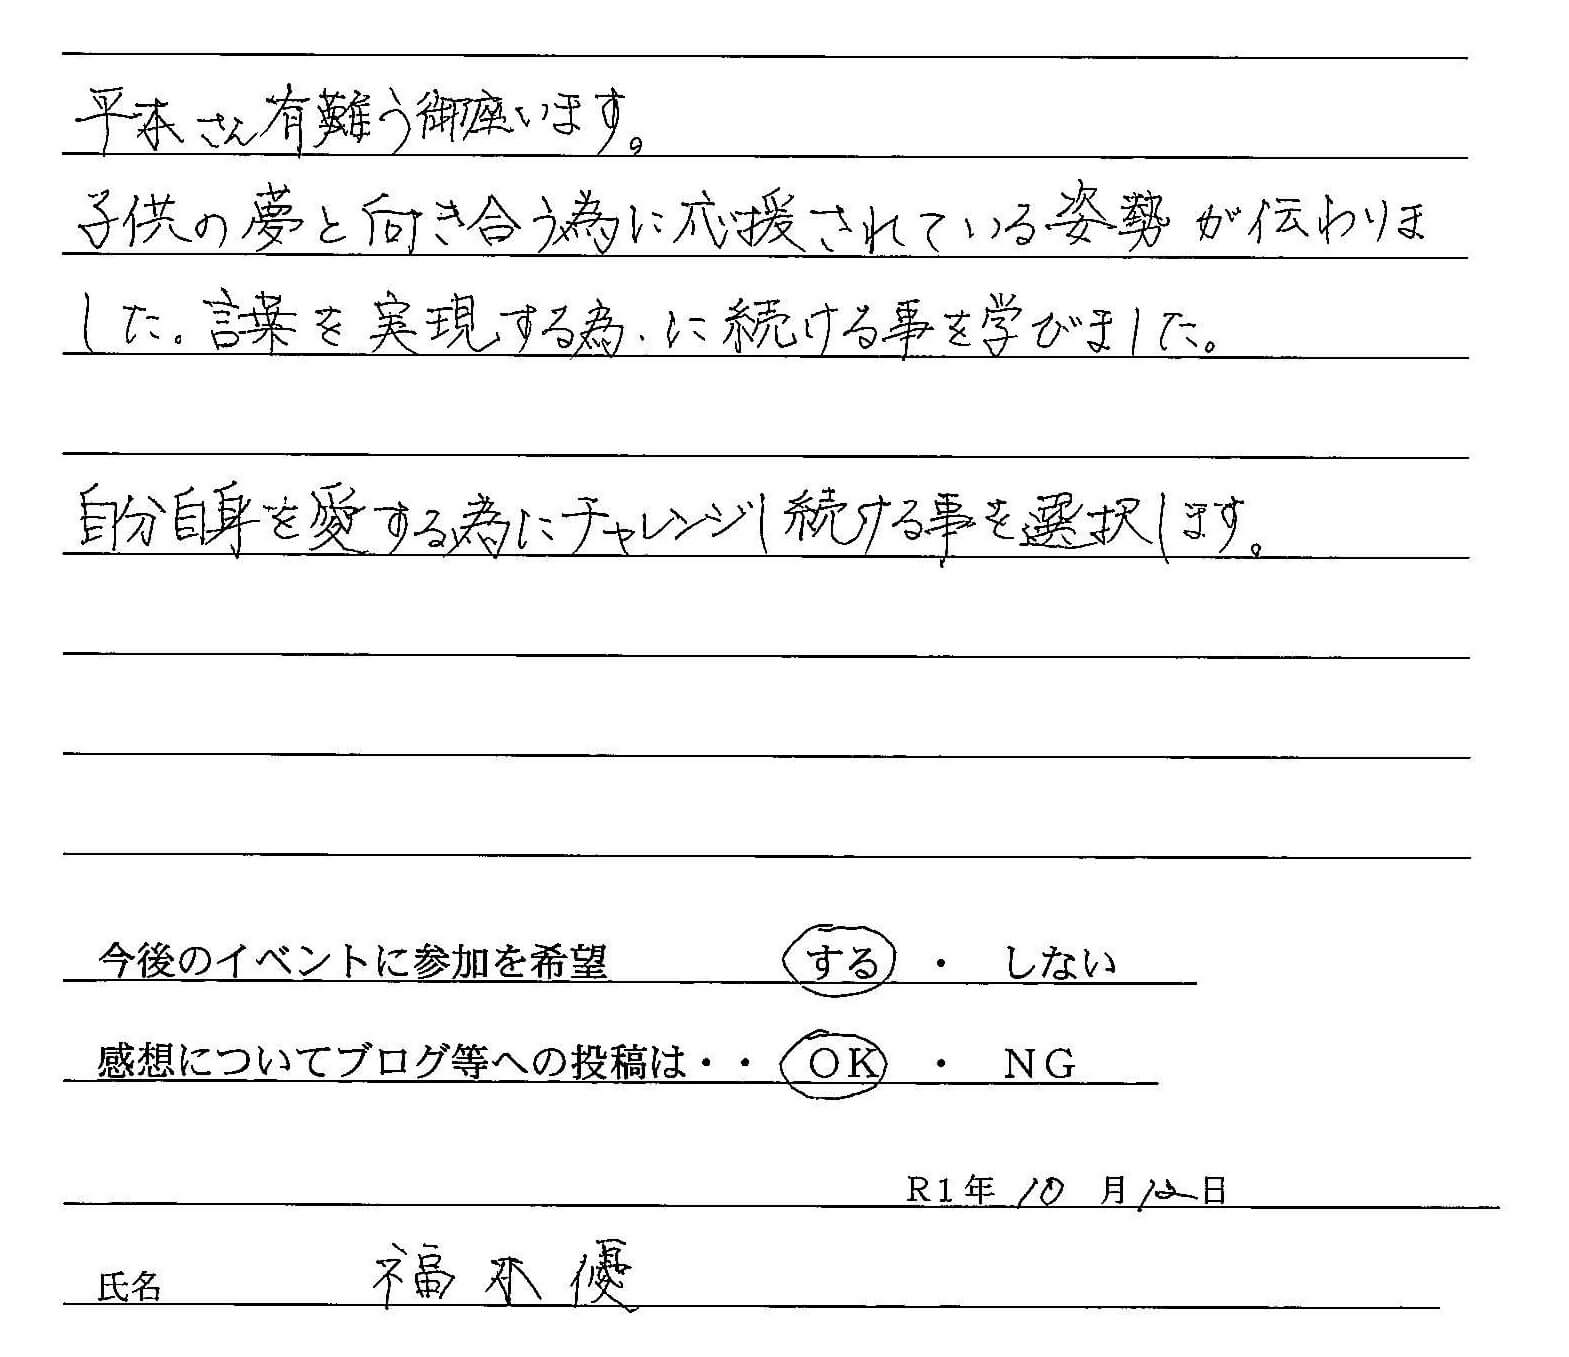 平本さん有難う御座います。
子供の夢と向き合う為に応援されている姿勢が伝わりま
した。言葉を実現する為に続ける事を学びました。
自分自身を愛する為にチャレンジし続ける事を選択します。
今後のイベントに参加を希望 する ・ しない
感想についてブログ等への投稿は・・ OK ・ NG
R1年 10 月 12 日
氏名 福木 優